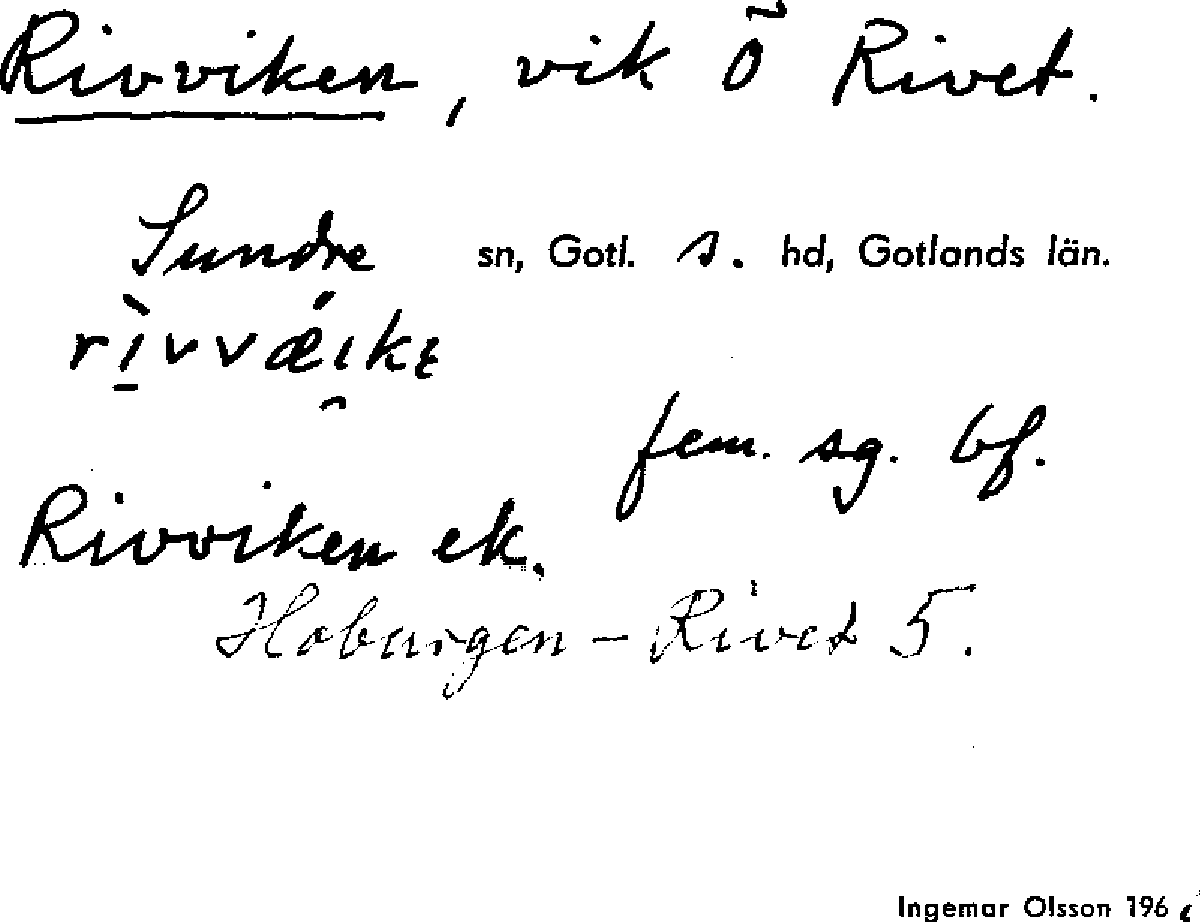 Rivviken, vik Ö Rivet.
Sundre sn, Gotl. s. hd, Gotlands län.
rìvvǽikɛ
fem. sg. bf.
Rivviken ek.
Hoburgen – Rivet 5.
Ingemar Olsson 196